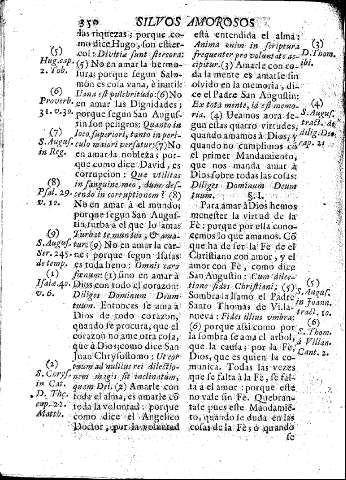 350 SILVOS AMOROSOS
das riquezas; porque como
dice Hugo, son estier-
col: Divitia sunt stercora:
(5) No en amar la hermo-
sura; porque segun Salo-
mòn es cosa vana, è inutil:
(6) No
en amar las Dignidades;
porque segun San Augus-
tin son peligro: Quanto in
loco superiori, tanto in peri-
culo maiori versatur: (7) No
en amar la nobleza; por-
que como dice David, es
corrupcion: Que utilitas
in sanguine meo, dum des-
cendo in corruptionem? (8)
No en amar al mundo;
porque segun San Augus-
tin, turba à el que lo ama:
Turbat te mundus, & ama-
tur? (9) No en amar la car-
ne; porque segun Isaìas
es toda heno: Omnis caro
fœnum: (1) sino en amar à
Dios con todo el corazon:
Diliges Dominum Deum
tuum. Entonces se ama à
Dios de todo corazon,
quando se procura, que el
corazon no ame otra cosa,
que à Dios; como dice San
Juan Chrysostomo: Ut cor
tuum ad nullius rei dilectio-
nem magis sit inclinatum,
quam Dei. (2) Amarle con
toda el alma, es amarle cō
toda la voluntad: porque
como dice el Angelico
Doctor, por la voluntad
(5)
Hug. cap.
2. Tob.
(6)
Proverb.
31. v. 30.
(7)
S. Augus.
in Reg.
(8)
Psal. 29.
v. 10.
(9)
S. Augus.
Ser. 245.
de temp.
(1)
Isaiæ 40.
v. 6.
(2)
S. Chrys.
in Cat.
D. Tho.
cap. 22.
Matth.
està entendida el alma:
Anima enim in scriptura
frequenter pro voluntate ac-
cipitur. (3) Amarle con to-
da la mente es amarle sin
olvido en la memoria, di-
ce el Padre San Augustin:
Ex tota mente, id est memo-
ria. (4) Veamos aora se-
gun estas quatro virtudes,
quando amamos à Dios, y
quando no cumplimos cō
el primer Mandamiento,
que nos manda amar à
Dios sobre todas las cosas:
Diliges Dominum Deum
tuum.
§. I.
Para amar à Dios hemos
menester la virtud de la
Fè: porque por ella cono-
cemos lo que amamos. Cō
que ha de ser la Fè de el
Christiano con amor, y el
amor con Fè, como dice
San Augustin: Cum dilec-
tione fides Christiani: (5)
Sombra la llamo el Padre
Santo Thomas de Villa-
nueva: Fides illius umbra:
(6) porque assi como por
la sombra se ama el arbol,
que la causa: por la Fè,
Dios, que es quien la co-
munica. Todas las vezes
que se falta à la Fè, se fal-
ta à el amor: porque este
no vale sin Fè. Quebran-
tale pues este Mandamiē-
to, quando se duda en las
cosas de la Fè; ò quando
se
(3)
D. Thom.
ibi.
(4)
S. Augus.
tract. de
dilig. Deo.
cap. 21
(5)
S. Augus.
in Joann.
tract. 10.
(6)
S. Thom.
à Villan.
Conc. 2.